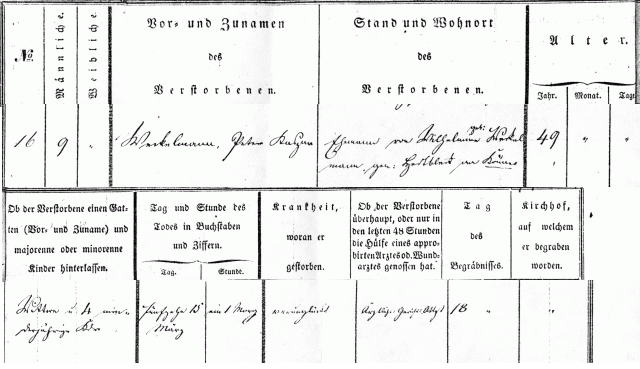 No
Männliche.
Weibliche.
Vor- und Zunamen
des
Verstorbenen.
Stand und Wohnort
des
Verstorbenen.
Alter.
Jahr. Monat. Tage
16 9 " Weckelmann, Peter Kaspar Ehemann von Wilhelmine geb: 49 " "
mann, gen:
Ob der Verstorbene einen Gat-
ten (Vor- und Zuname) und
majorenne oder minorenne
Kinder hinterlassen.
Tag und Stunde des
Todes in Buchstaben
und Ziffern.
Tag. Stunde.
Krankheit,
woran er
gestorben.
Ob der Verstorbene
überhaupt, oder nur in
den letzten 48 Stunden
die Hülfe eines appro-
birten Arztes od. Wund-
arztes genossen hat.
Tag
des
Begräbnisses.
Kirchhof,
auf welchem
er begraben
worden.
u. 4 min-
derjährige Kdr
fünfzehn 15
März
ein 1 Morg
verunglückt
18 "
"